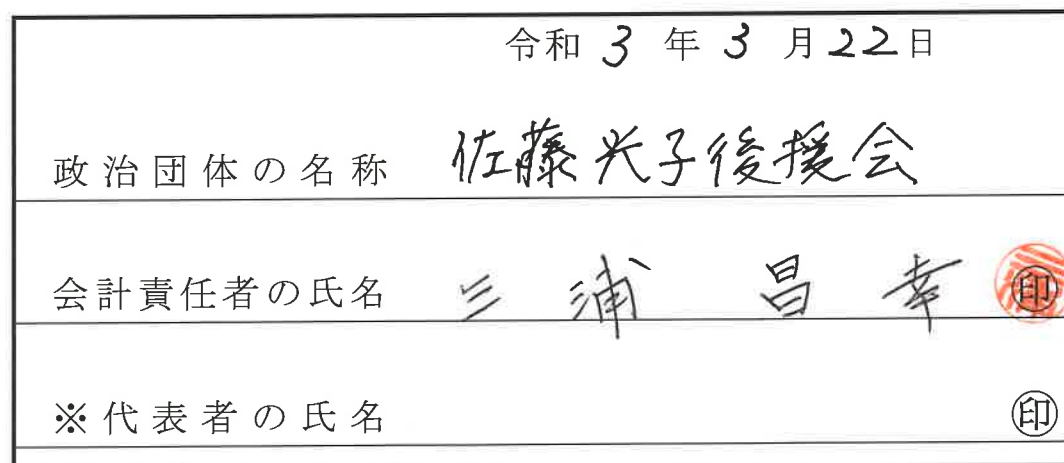 令和 3 年 3 月 22 日
政治団体の名称 佐藤光子後援会
会計責任者の氏名 三浦 昌幸 印
※代表者の氏名 印